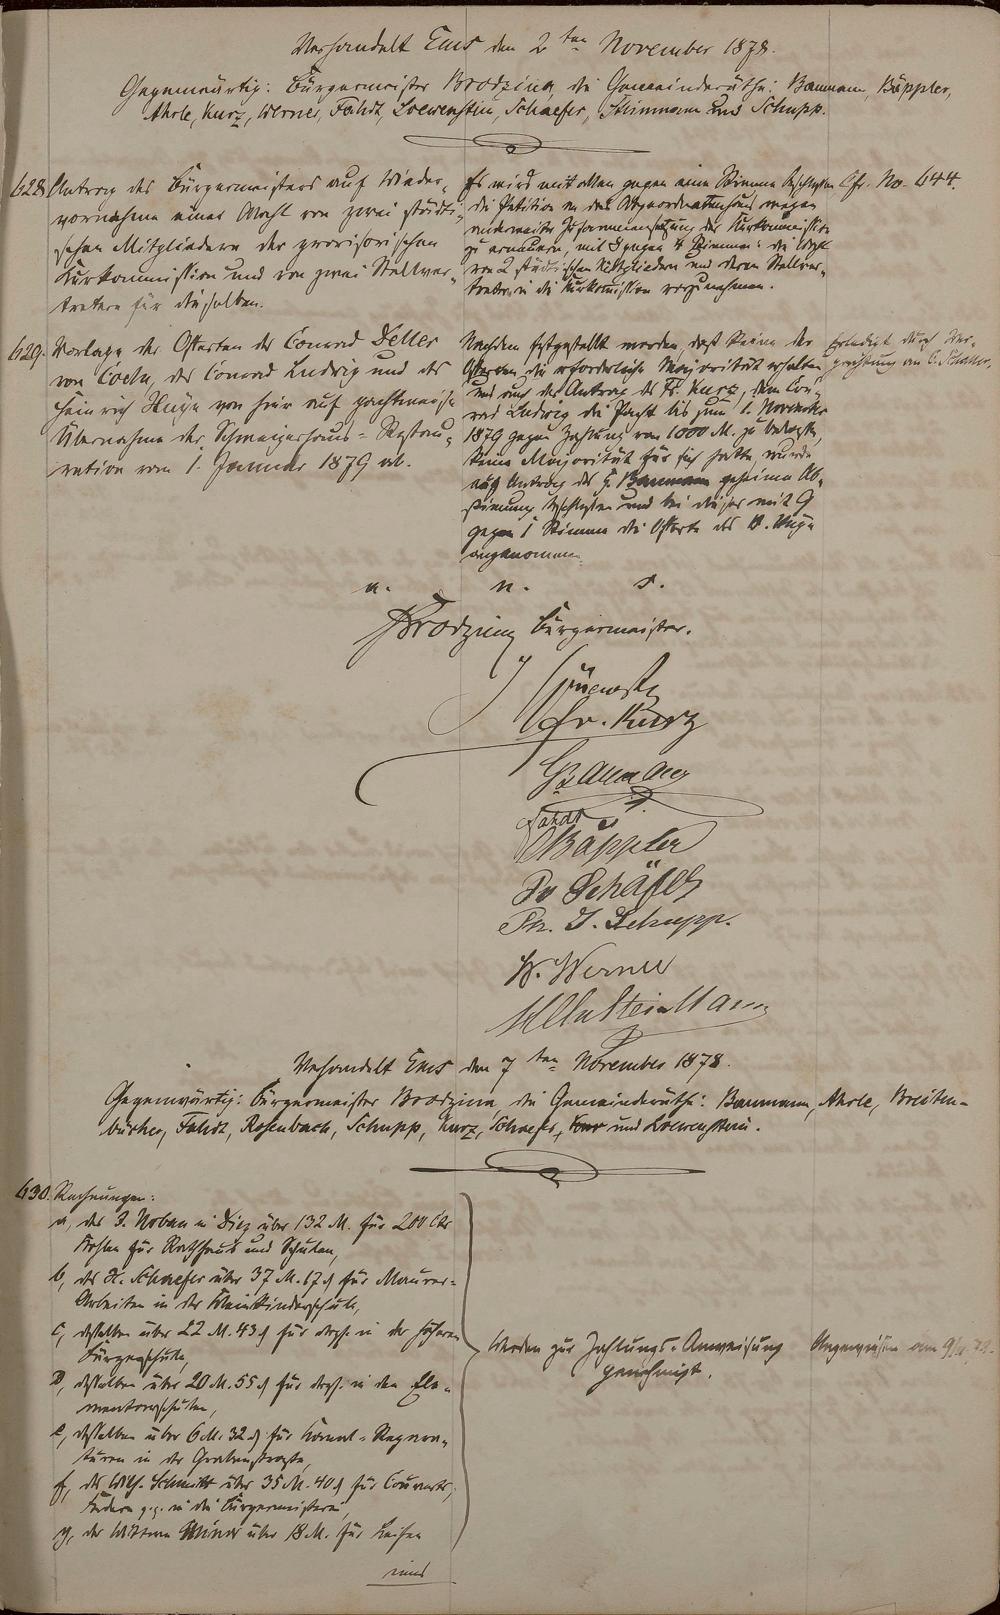 Verhandelt Ems den 2ten November 1878.
Gegenwärtig: Bürgermeister Brodzina, die Gemeinderäthe: Baumann, Bäppler,
Ahrle, Kurz, Werner, Fahdt, Loewenstein, Schaefer, Steinmann und Schupp.
628. Antrag des Bürgermeisters auf Wieder-
vornahme einer Wahl von zwei städti-
schen Mitgliedern der provisorischen
Kurkommission und von zwei Stellver-
tretern für dieselben.
Es wird mit allen gegen eine Stimme beschlossen
die Petition an das Abgeordnetenhaus wegen
anderweiter Zusammensetzung der Kurkommission
zu erneuern, mit 8 gegen 4 Stimmen: die Wahl
von 2 städtischen Mitgliedern und deren Stellver-
treter in die Kurkommission vorzunehmen.
Cfr. No. 644.
629. Vorlage der Offerten des Conrad Deller
von Coeln, des Conrad Ludwig und des
Heinrich Huyn von hier auf pachtweise
Übernahme der Schweizerhaus-Restau-
ration vom 1. Januar 1879 ab.
Nachdem festgestellt worden, daß keine der
Offerten die erforderliche Majorität erhalten
und auch der Antrag des Fr. Kurz, dem Con-
rad Ludwig die Pacht bis zum 1. November
1879 gegen Zahlung von 1000 M. zu belassen,
keine Majorität für sich hatte, wurde
auf Antrag des G. Baumann geheime Ab-
stimmung beschlossen und bei dieser mit 9
gegen 1 Stimme die Offerte des H. Huyn
angenommen.
Erledigt durch Ver-
pachtung an
v. n. s.
Brodzina Bürgermeister.
Fr. Kurz
G Baumann
Fahdt
Bäppler
Schäfer
Ph. J. Schupp.
W. Werner
Steinmann
Verhandelt Ems den 7ten November 1878.
Gegenwärtig: Bürgermeister Brodzina, die Gemeinderäthe: Baumann, Ahrle, Breiten-
bücher, Fahdt, Rosenbach, Schupp, Kurz, Schaefer, und Loewenstein.
630. Rechnungen:
a, des J. Noban in Diez über 132 M. für 200 Ctr
Kohlen für Rathhaus und Schulen,
b, des H. Schaefer über 37 M. 17 ₰ für Maurer-
Arbeiten in der Kleinkinderschule,
c, desselben über 22 M. 43 ₰ für desgl. in der höheren
Bürgerschule,
d, desselben über 20 M. 55 ₰ für desgl. in den Ele-
mentarschulen,
e, desselben über 6 M. 32 ₰ für Kanal-Repara-
turen in der Grabenstraße,
f, des Wilh. Schmitt über 35 M. 40 ₰ für Couverts,
Federn p.p. in die Bürgermeisterei,
g, der Wittwe Minor über 18 M. für Seifen
und
Werden zur Zahlungs-Anweisung
genehmigt.
Angewiesen am